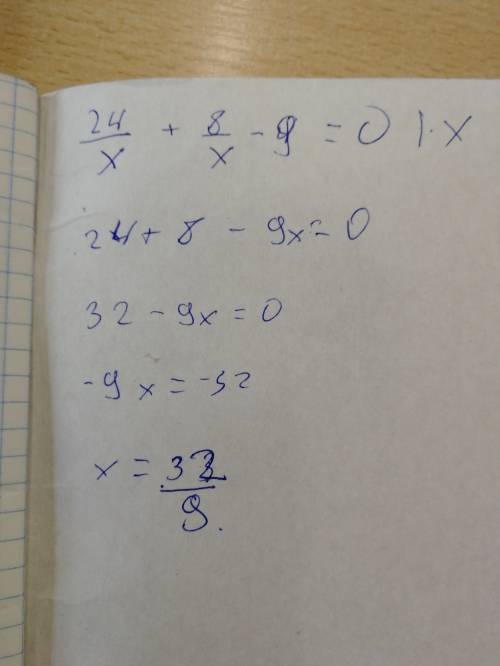 24/x + 8/x - 9 = 0 | · x
24 + 8 - 9x = 0
32 - 9x = 0
-9x = -32
x = 32/9.